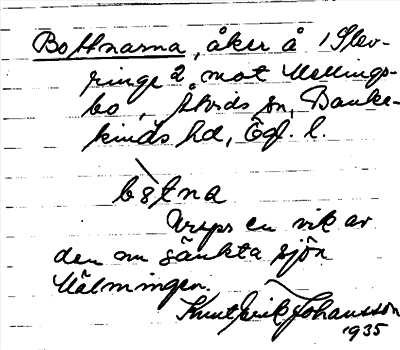 Bottnarna, åker å 1 Slev-
ringe 2 mot Mellings-
bo, Åtvids sn, Banke-
kinds hd, Ögl. l.
båtna
Urspr en vik av
den nu sänkta sjön
Målmingen.
Knut Erik Johansson
1935